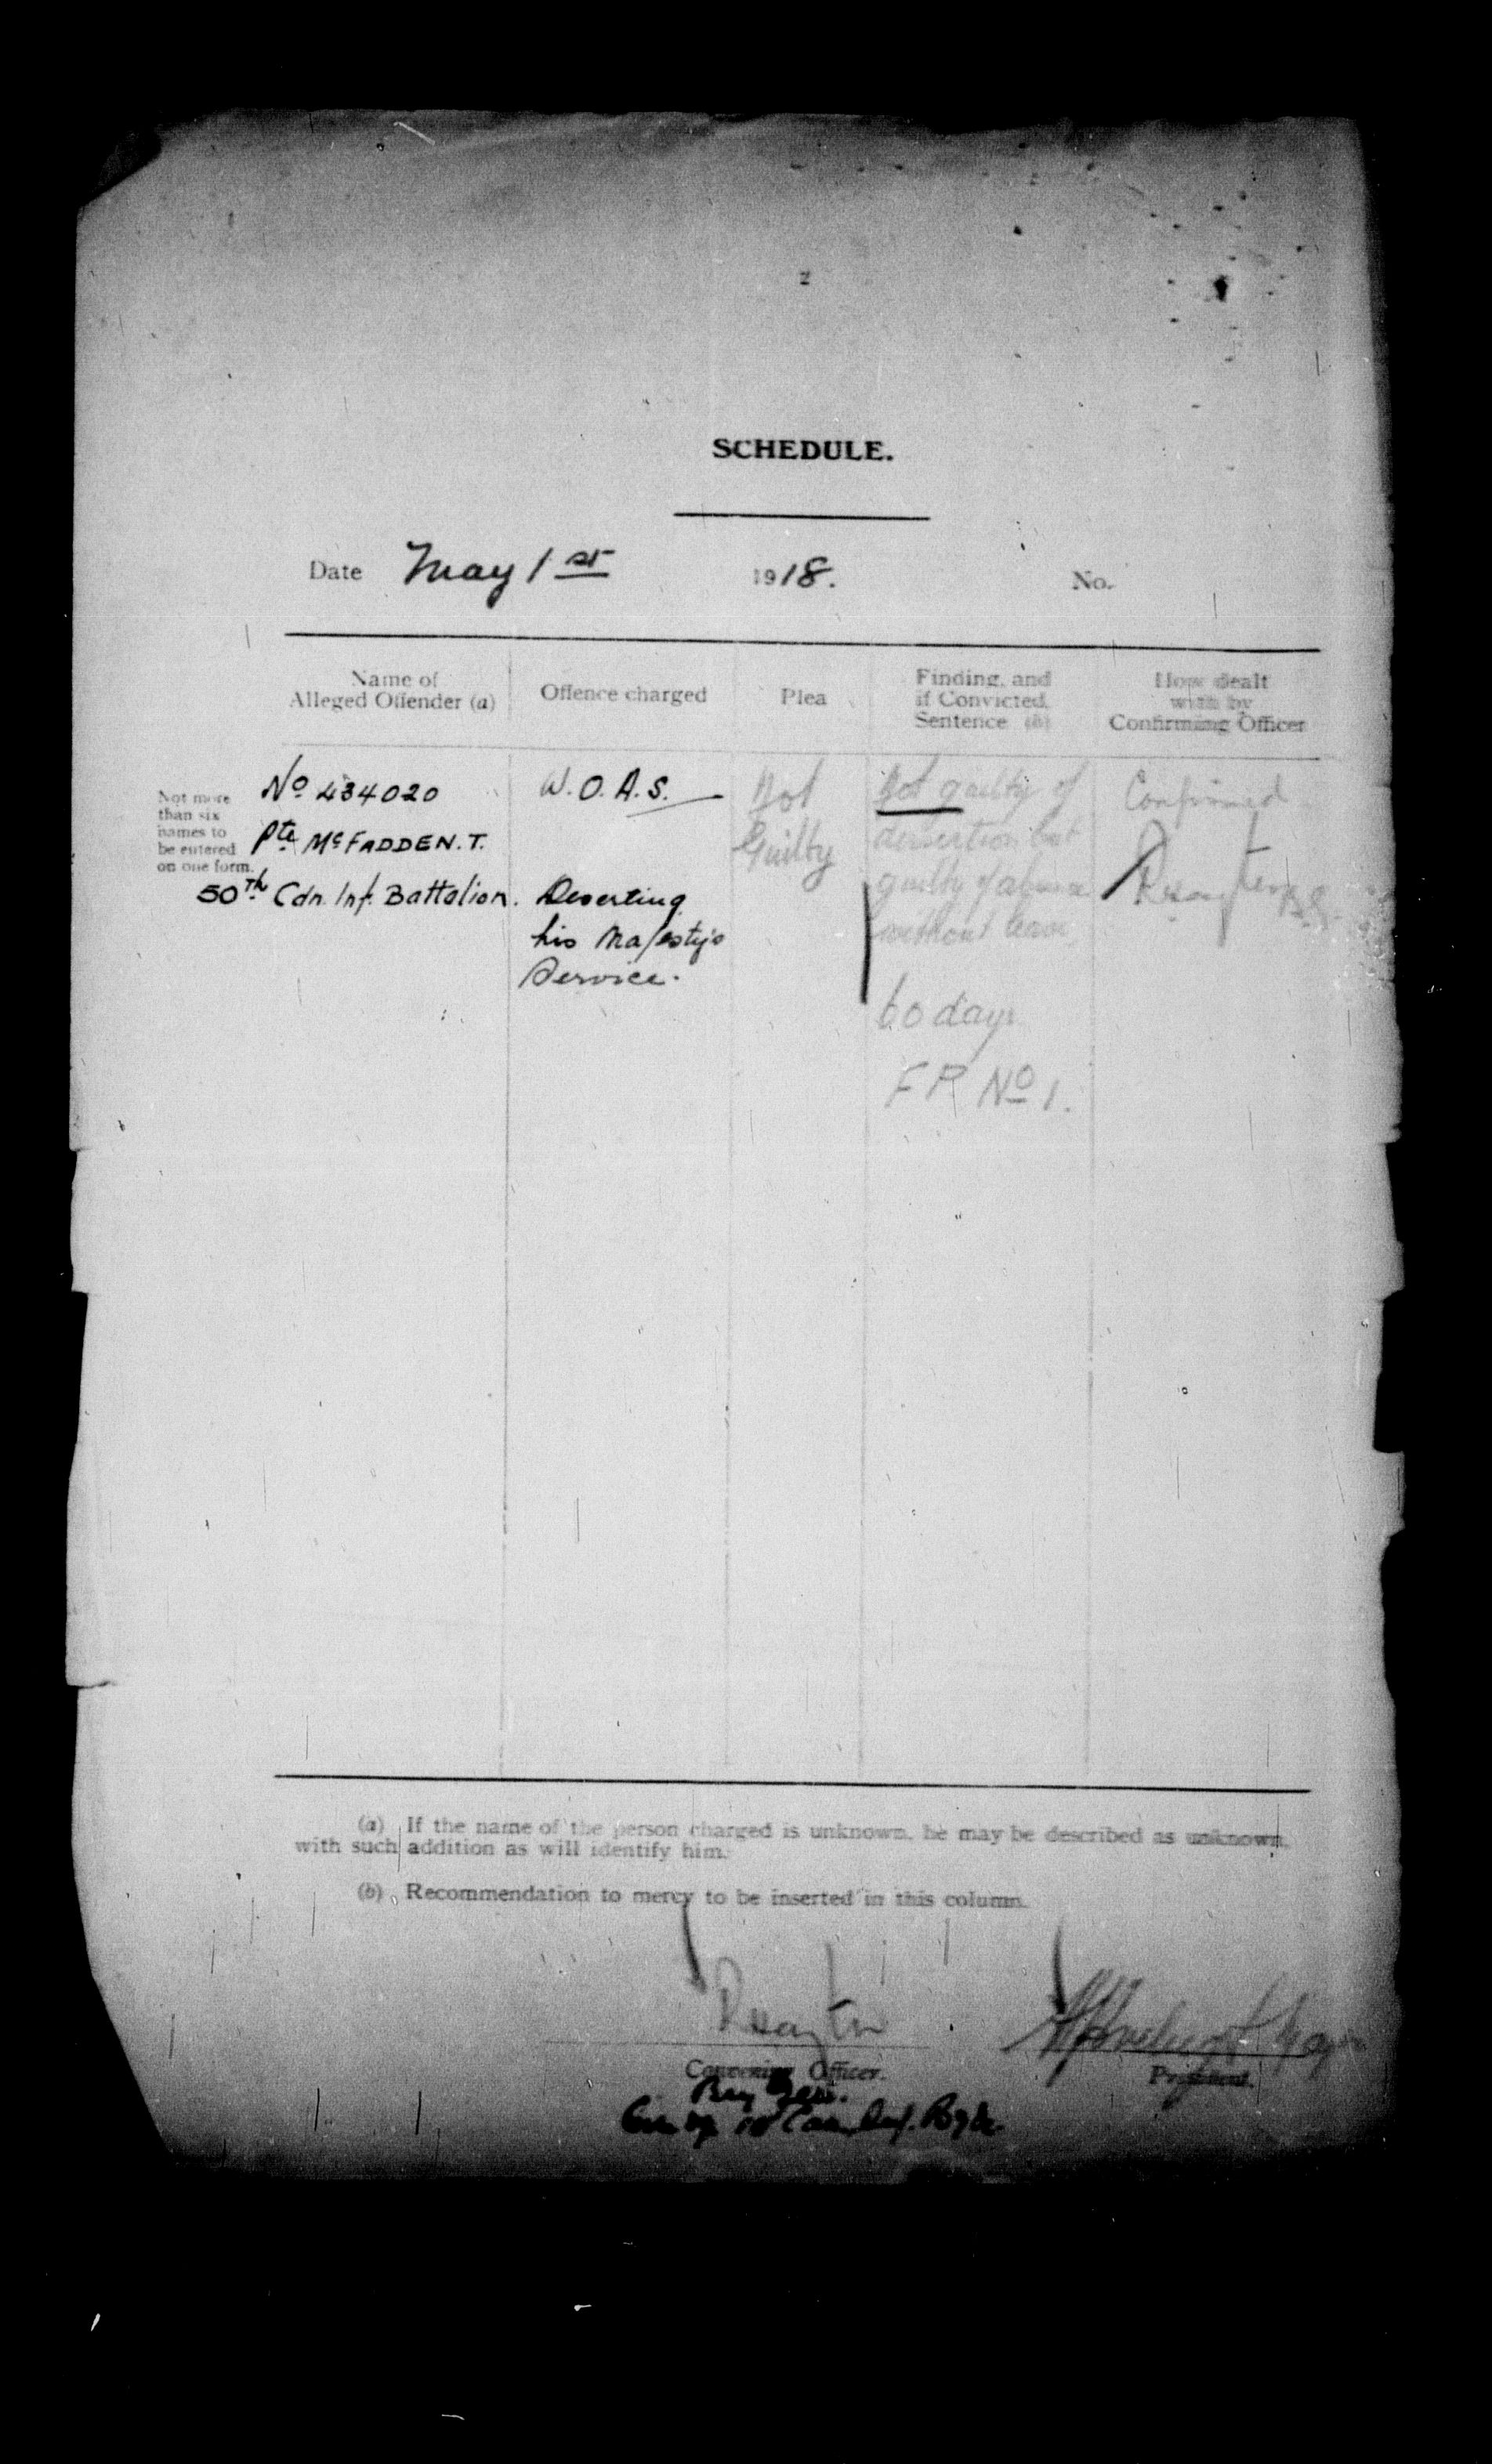 2
SCHEDULE.
Date May 1st 1918. No.
Name of
Alleged Offender (a)
Offence charged
Plea
Finding, and
if Convicted,
Sentence (b)
How dealt
with by
Confirming Officer
Not more
than six
names to
be entered
on one form.
No 434020
Pte McFADDEN. T.
50th Cdn. Inf. Battalion.
W.O.A.S.
Deserting
his Majesty's
Service.
Not
Guilty
Not guilty of
desertion but
guilty of absence
without leave
60 days
F P No 1.
Confirmed
(a) If the name of the person charged is unknown, he may be described as unknown,
with such addition as will identify him.
(b) Recommendation to mercy to be inserted in this column.
Convening Officer.
President.